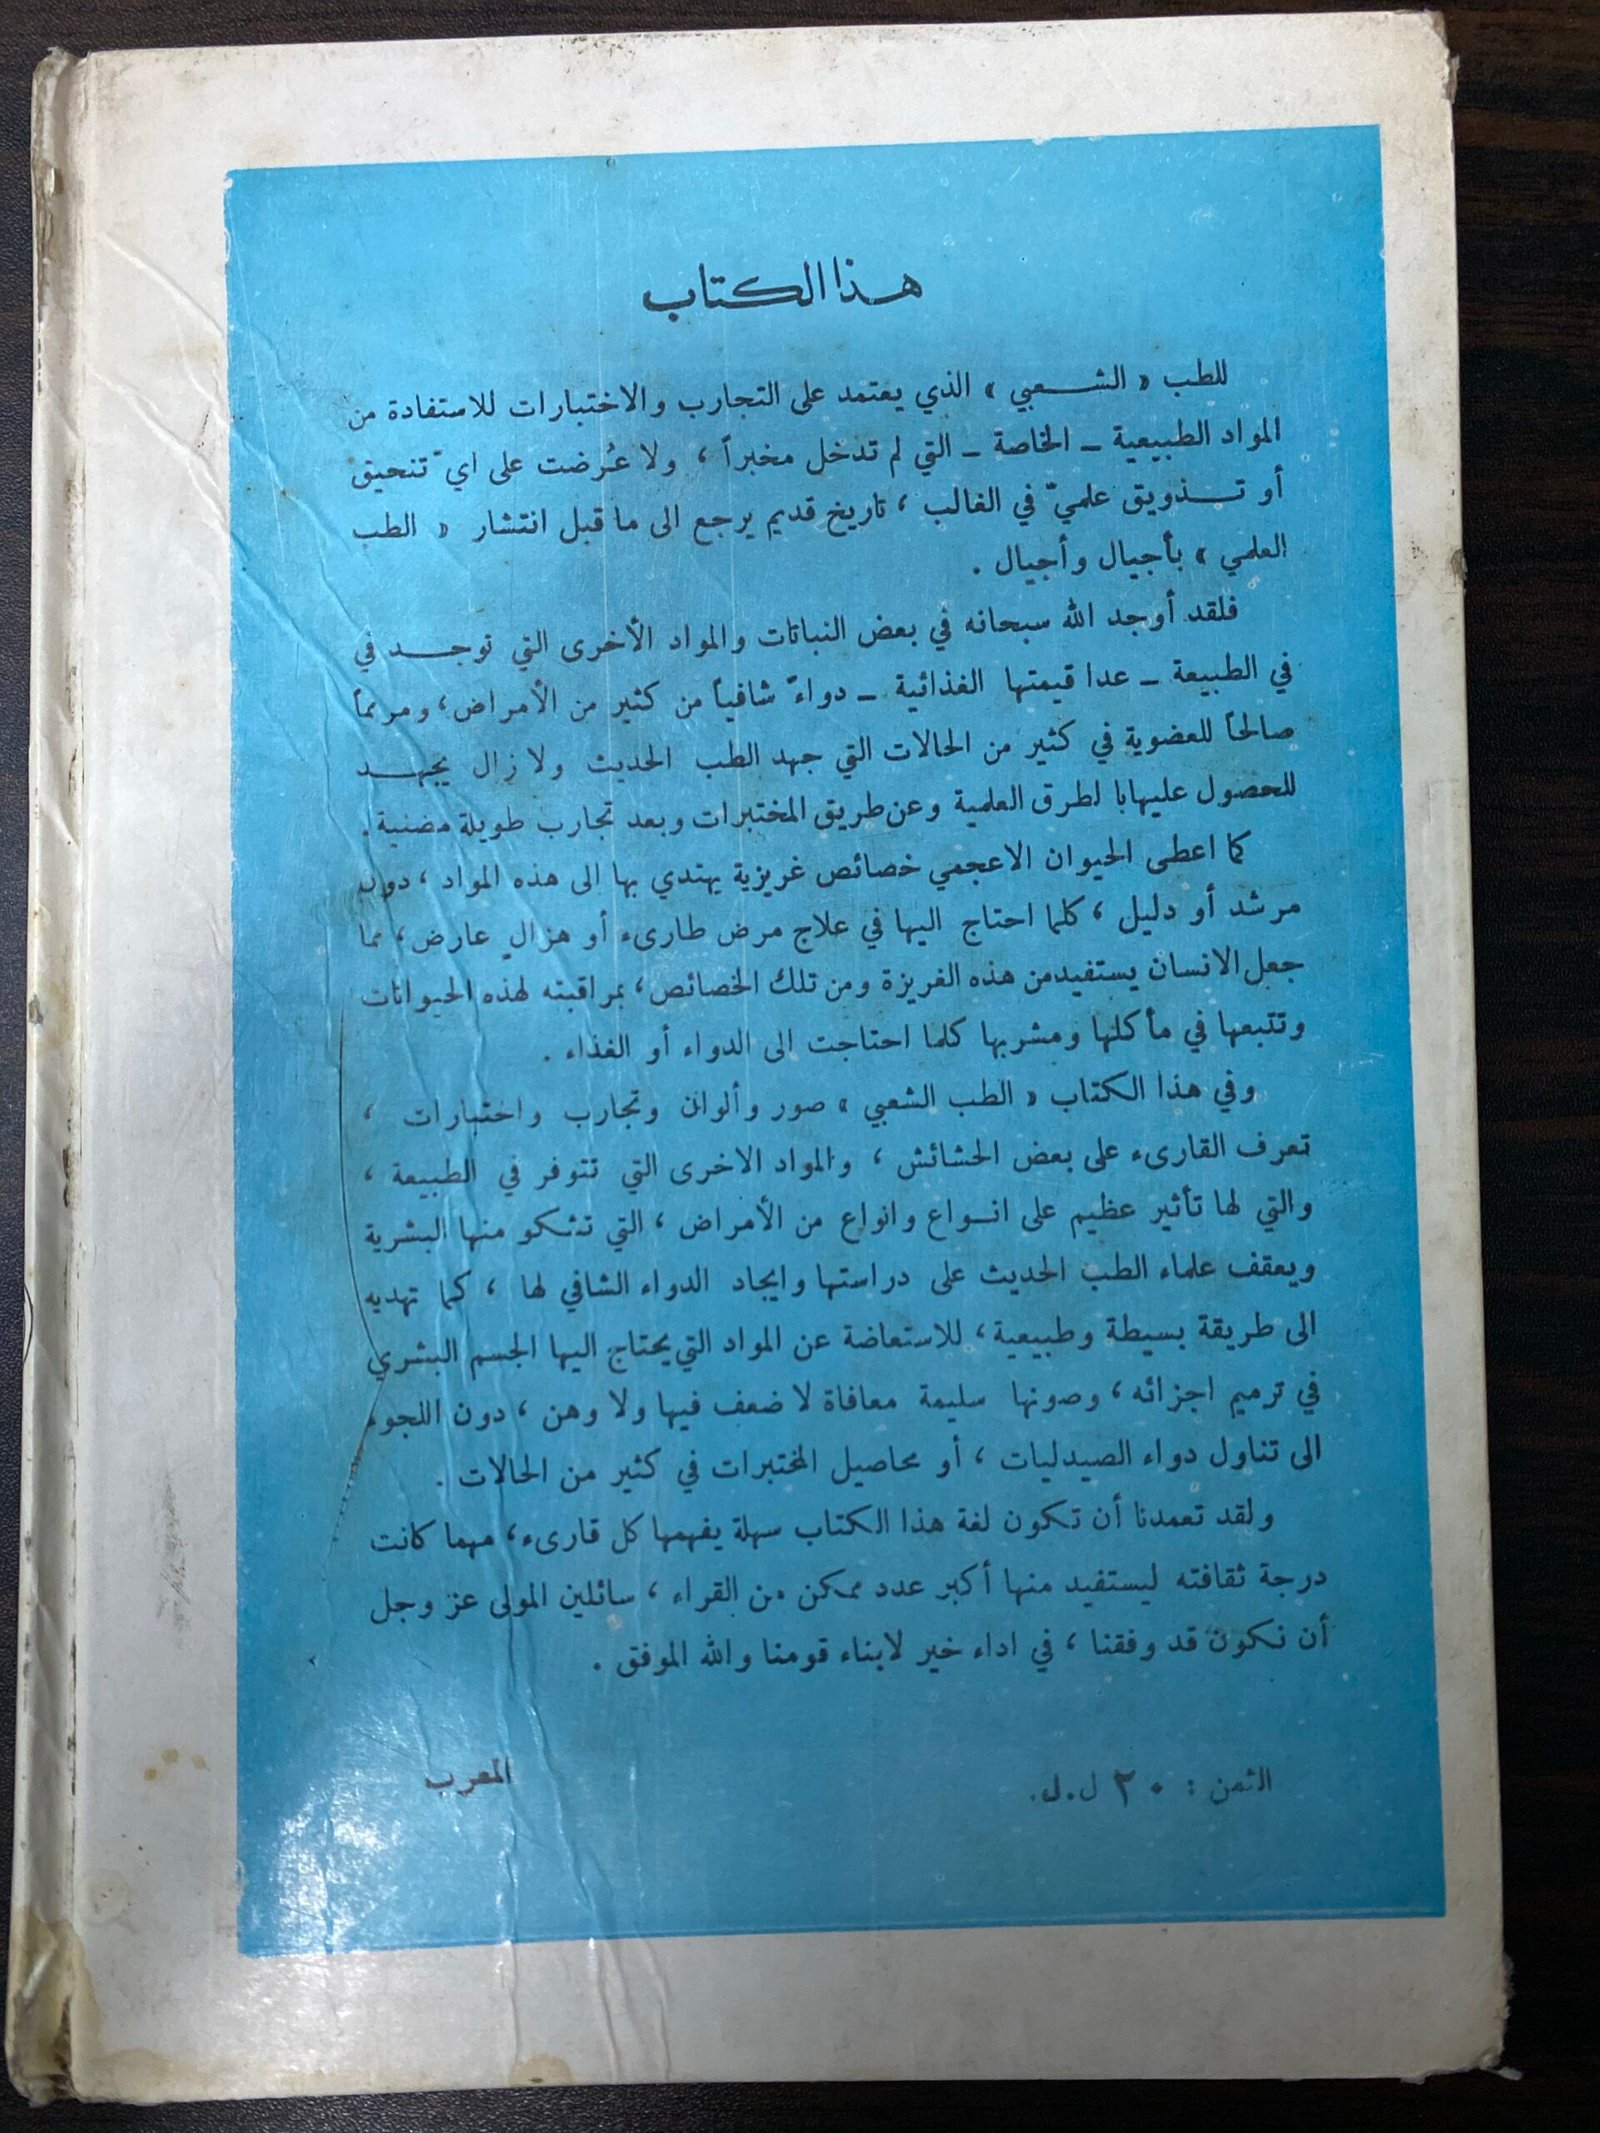 هذا الكتاب
للطب « الشعبي » الذي يعتمد على التجارب والاختبارات للاستفادة من
المواد الطبيعية ـ الخاصة ـ التي لم تدخل مخبراً ، ولا عُرضت على ايّ تنحيق
أو تذويق علميّ في الغالب ، تاريخ قديم يرجع الى ما قبل انتشار « الطب
العلمي » بأجيال وأجيال .
فلقد أوجد الله سبحانه في بعض النباتات والمواد الأخرى التي توجد في
في الطبيعة ـ عدا قيمتها الغذائية ـ دواءً شافياً من كثير من الأمراض، ومرمماً
صالحاً للعضوية في كثير من الحالات التي جهد الطب الحديث ولا زال يجهد
للحصول عليهابا لطرق العلمية وعن طريق المختبرات وبعد تجارب طويلة مضنية.
كما اعطى الحيوان الاعجمي خصائص غريزية يهتدي بها الى هذه المواد ، دون
مرشد أو دليل ، كلما احتاج اليها في علاج مرض طارىء أو هزالٍ عارض، مما
جعل الانسان يستفيد من هذه الغريزة ومن تلك الخصائص، بمراقبته لهذه الحيوانات
وتتبعها في مأكلها ومشربها كلما احتاجت الى الدواء أو الغذاء .
وفي هذا الكتاب « الطب الشعبي » صور وألوان وتجارب واختبارات ،
تعرف القارىء على بعض الحشائش ، والمواد الاخرى التي تتوفر في الطبيعة ،
والتي لها تأثير عظيم على انواع وانواع من الأمراض ، التي تشكو منها البشرية
ويعقف علماء الطب الحديث على دراستها وايجاد الدواء الشافي لها ، كما تهديه
الى طريقة بسيطة وطبيعية ، للاستعاضة عن المواد التي يحتاج اليها الجسم البشري
في ترميم اجزائه ، وصونها سليمة معافاة لا ضعف فيها ولا وهن ، دون اللجوء
الى تناول دواء الصيدليات ، أو محاصيل المختبرات في كثير من الحالات .
ولقد تعمدنا أن تكون لغة هذا الكتاب سهلة يفهمها كل قارىء، مهما كانت
درجة ثقافته ليستفيد منها أكبر عدد ممكن من القراء ، سائلين المولى عز وجل
أن نكون قد وفقنا ، في اداء خير لابناء قومنا والله الموفق .
المعرب
الثمن : ٢٠ ل.ل.